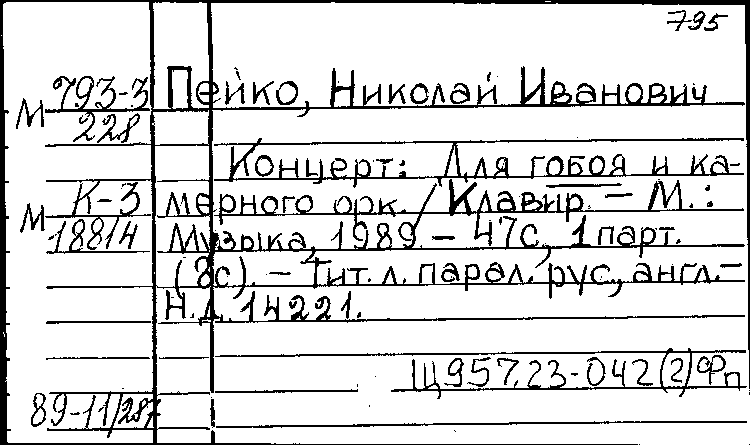 795
М 793-3
228
Пейко, Николай Иванович
Концерт: Для гобоя и ка-
М К-3
188/4
мерного орк. / Клавир. – М.:
Музыка, 1989. – 47с, 1 парт.
(8с). – Тит. л. парал. рус., англ. –
Н.Д. 14221.
Щ957.23-042(2)Фп
89-11/287